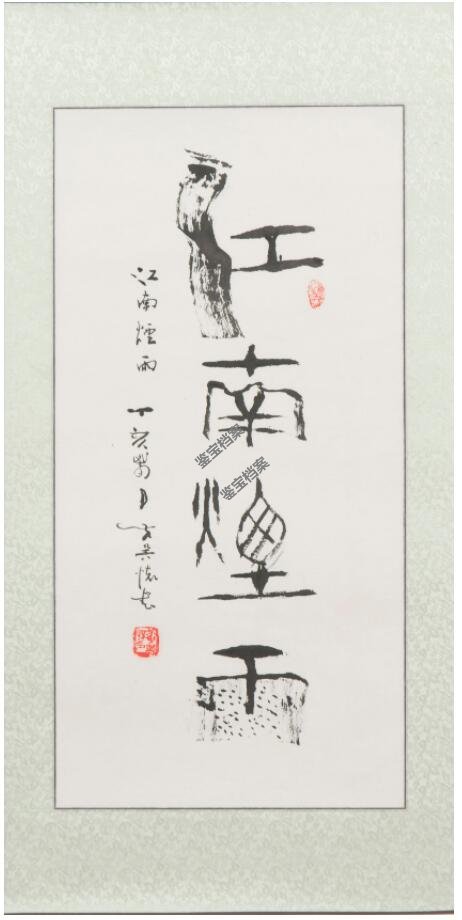 江南煙雨
江南煙雨 丁亥 月
鉴宝档案
鉴宝档案